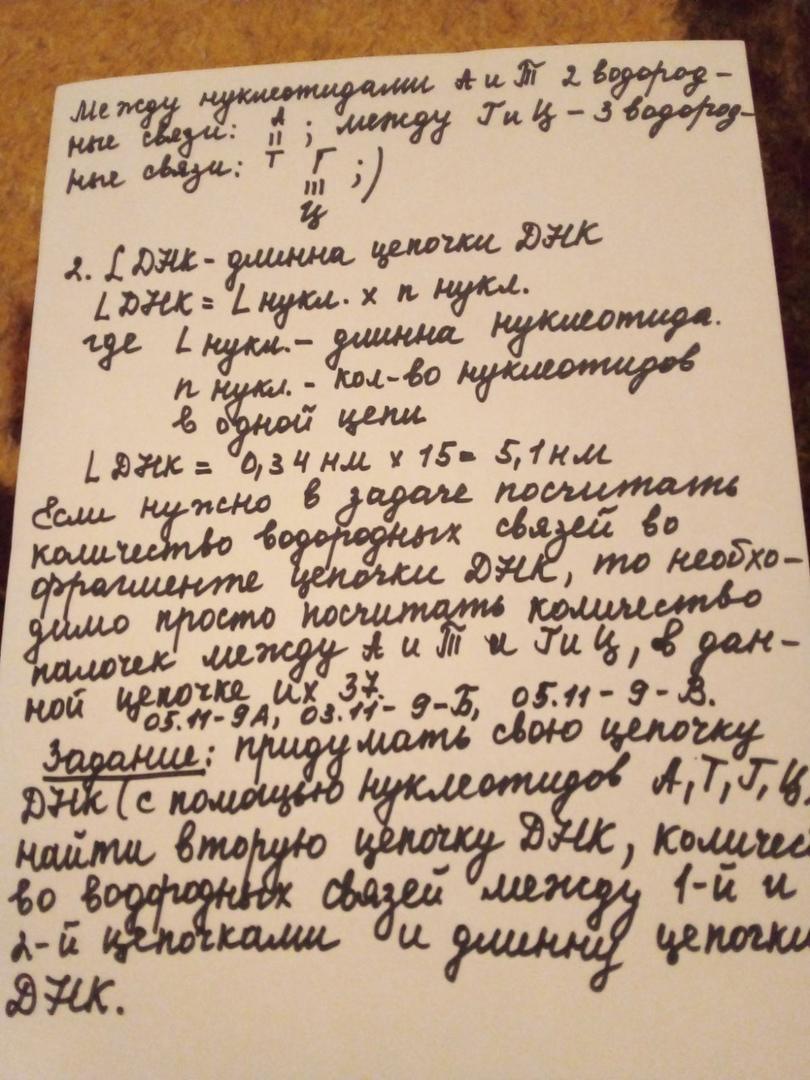 Между нуклеотидами А и Т 2 водород-
ные связи: А || Т ; между Г и Ц - 3 водород-
ные связи: Г ||| Ц ;)
2. L ДНК - длинна цепочки ДНК
L ДНК = L нукл. х n нукл.
где L нукл. - длинна нуклеотида.
n нукл. - кол-во нуклеотидов
в одной цепи
L ДНК = 0,34 нм х 15 = 5,1 нм
Если нужно в задаче посчитать
количество водородных связей во
фрагменте цепочки ДНК, то необхо-
димо просто посчитать количество
палочек между А и Т и Г и Ц, в дан-
ной цепочке их 37.
05.11 - 9А, 03.11 - 9-Б, 05.11 - 9-В.
Задание: придумать свою цепочку
ДНК (с помощью нуклеотидов А, Т, Г, Ц,
найти вторую цепочку ДНК, количес
во водородных связей между 1-й и
2-й цепочками и длинну цепочки
ДНК.